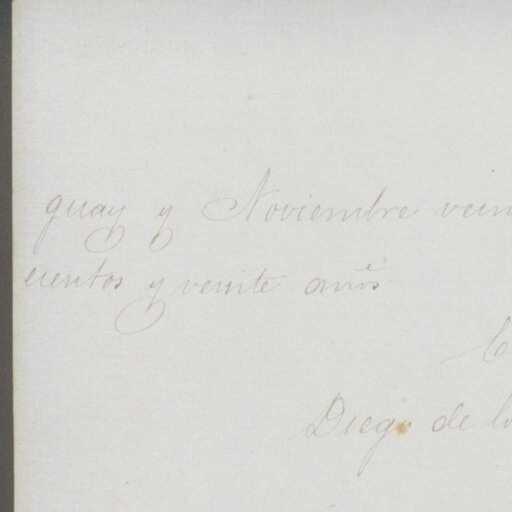 quay y Noviembre vein
cientos y veinte años
C
Diego de lo